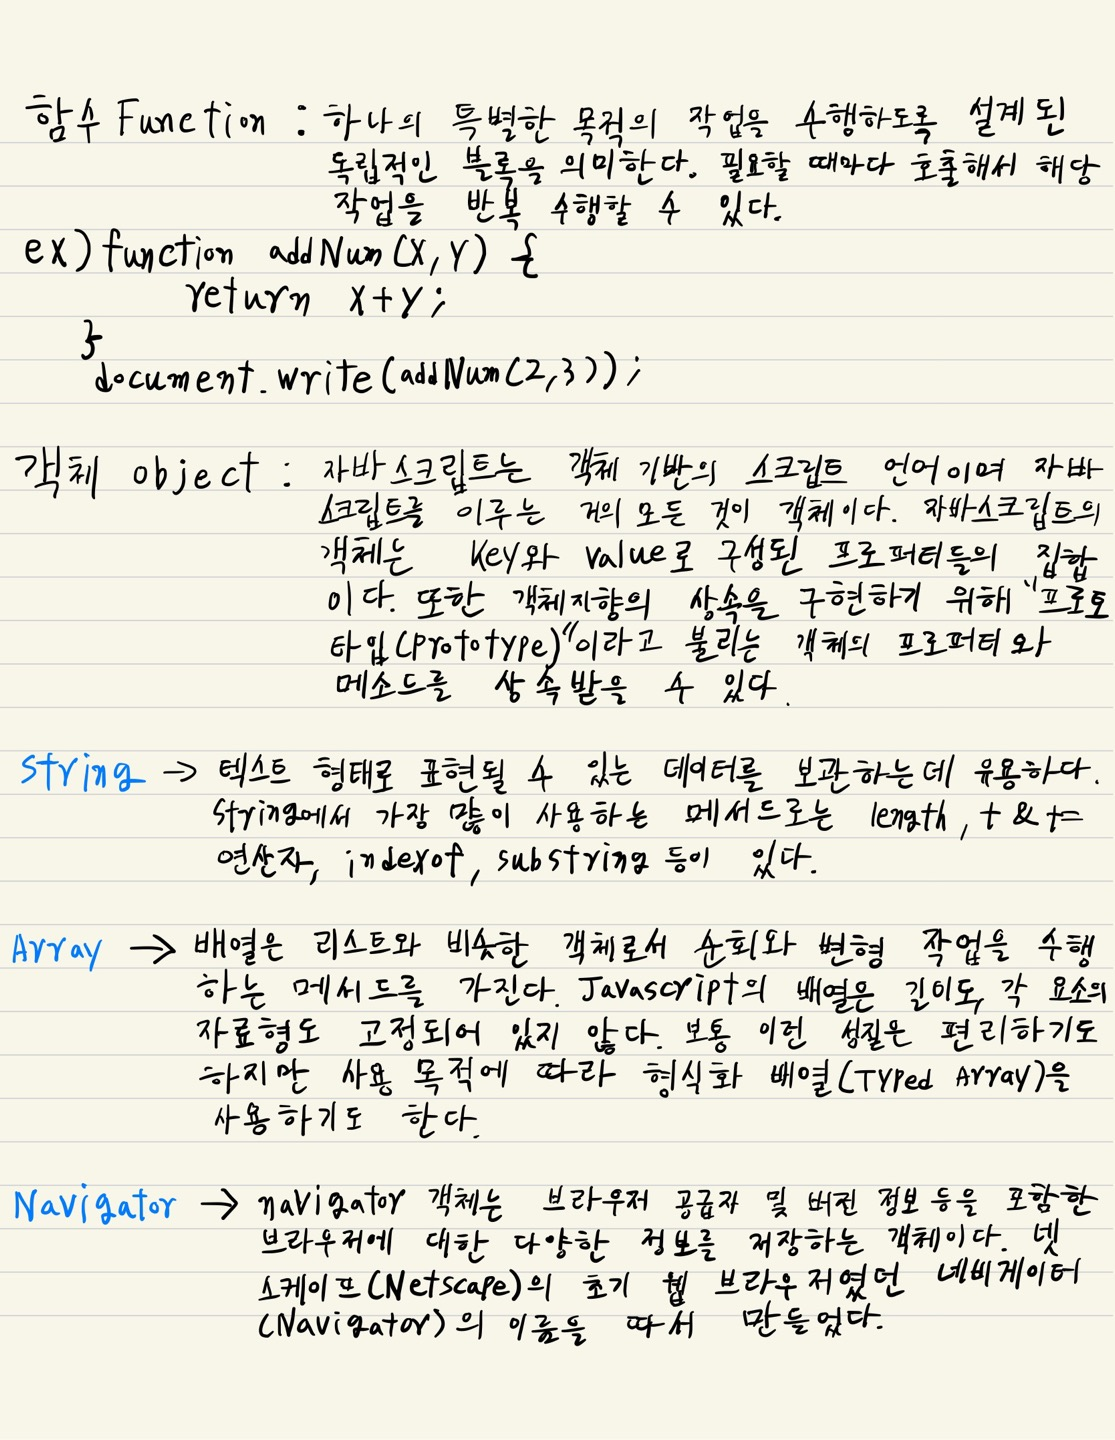 함수 Function : 하나의 특별한 목적의 작업을 수행하도록 설계된
독립적인 블록을 의미한다. 필요할 때마다 호출해서 해당
작업을 반복 수행할 수 있다.
ex) function addNum(x, y) {
return x+y;
}
document.write(addNum(2,3));
객체 object : 자바스크립트는 객체 기반의 스크립트 언어이며 자바
스크립트를 이루는 거의 모든 것이 객체이다. 자바스크립트의
객체는 key와 value로 구성된 프로퍼티들의 집합
이다. 또한 객체지향의 상속을 구현하기 위해 "프로토
타입(prototype)"이라고 불리는 객체의 프로퍼티와
메소드를 상속받을 수 있다.
String → 텍스트 형태로 표현될 수 있는 데이터를 보관하는데 유용하다.
string에서 가장 많이 사용하는 메서드로는 length, + & +=
연산자, indexof, substring 등이 있다.
Array → 배열은 리스트와 비슷한 객체로서 순회와 변형 작업을 수행
하는 메서드를 가진다. Javascript의 배열은 길이도, 각 요소의
자료형도 고정되어 있지 않다. 보통 이런 성질은 편리하기도
하지만 사용 목적에 따라 형식화 배열(Typed Array)을
사용하기도 한다.
Navigator → navigator 객체는 브라우저 공급자 및 버전 정보 등을 포함한
브라우저에 대한 다양한 정보를 저장하는 객체이다. 넷
스케이프(Netscape)의 초기 웹 브라우저였던 네비게이터
(Navigator)의 이름을 따서 만들었다.